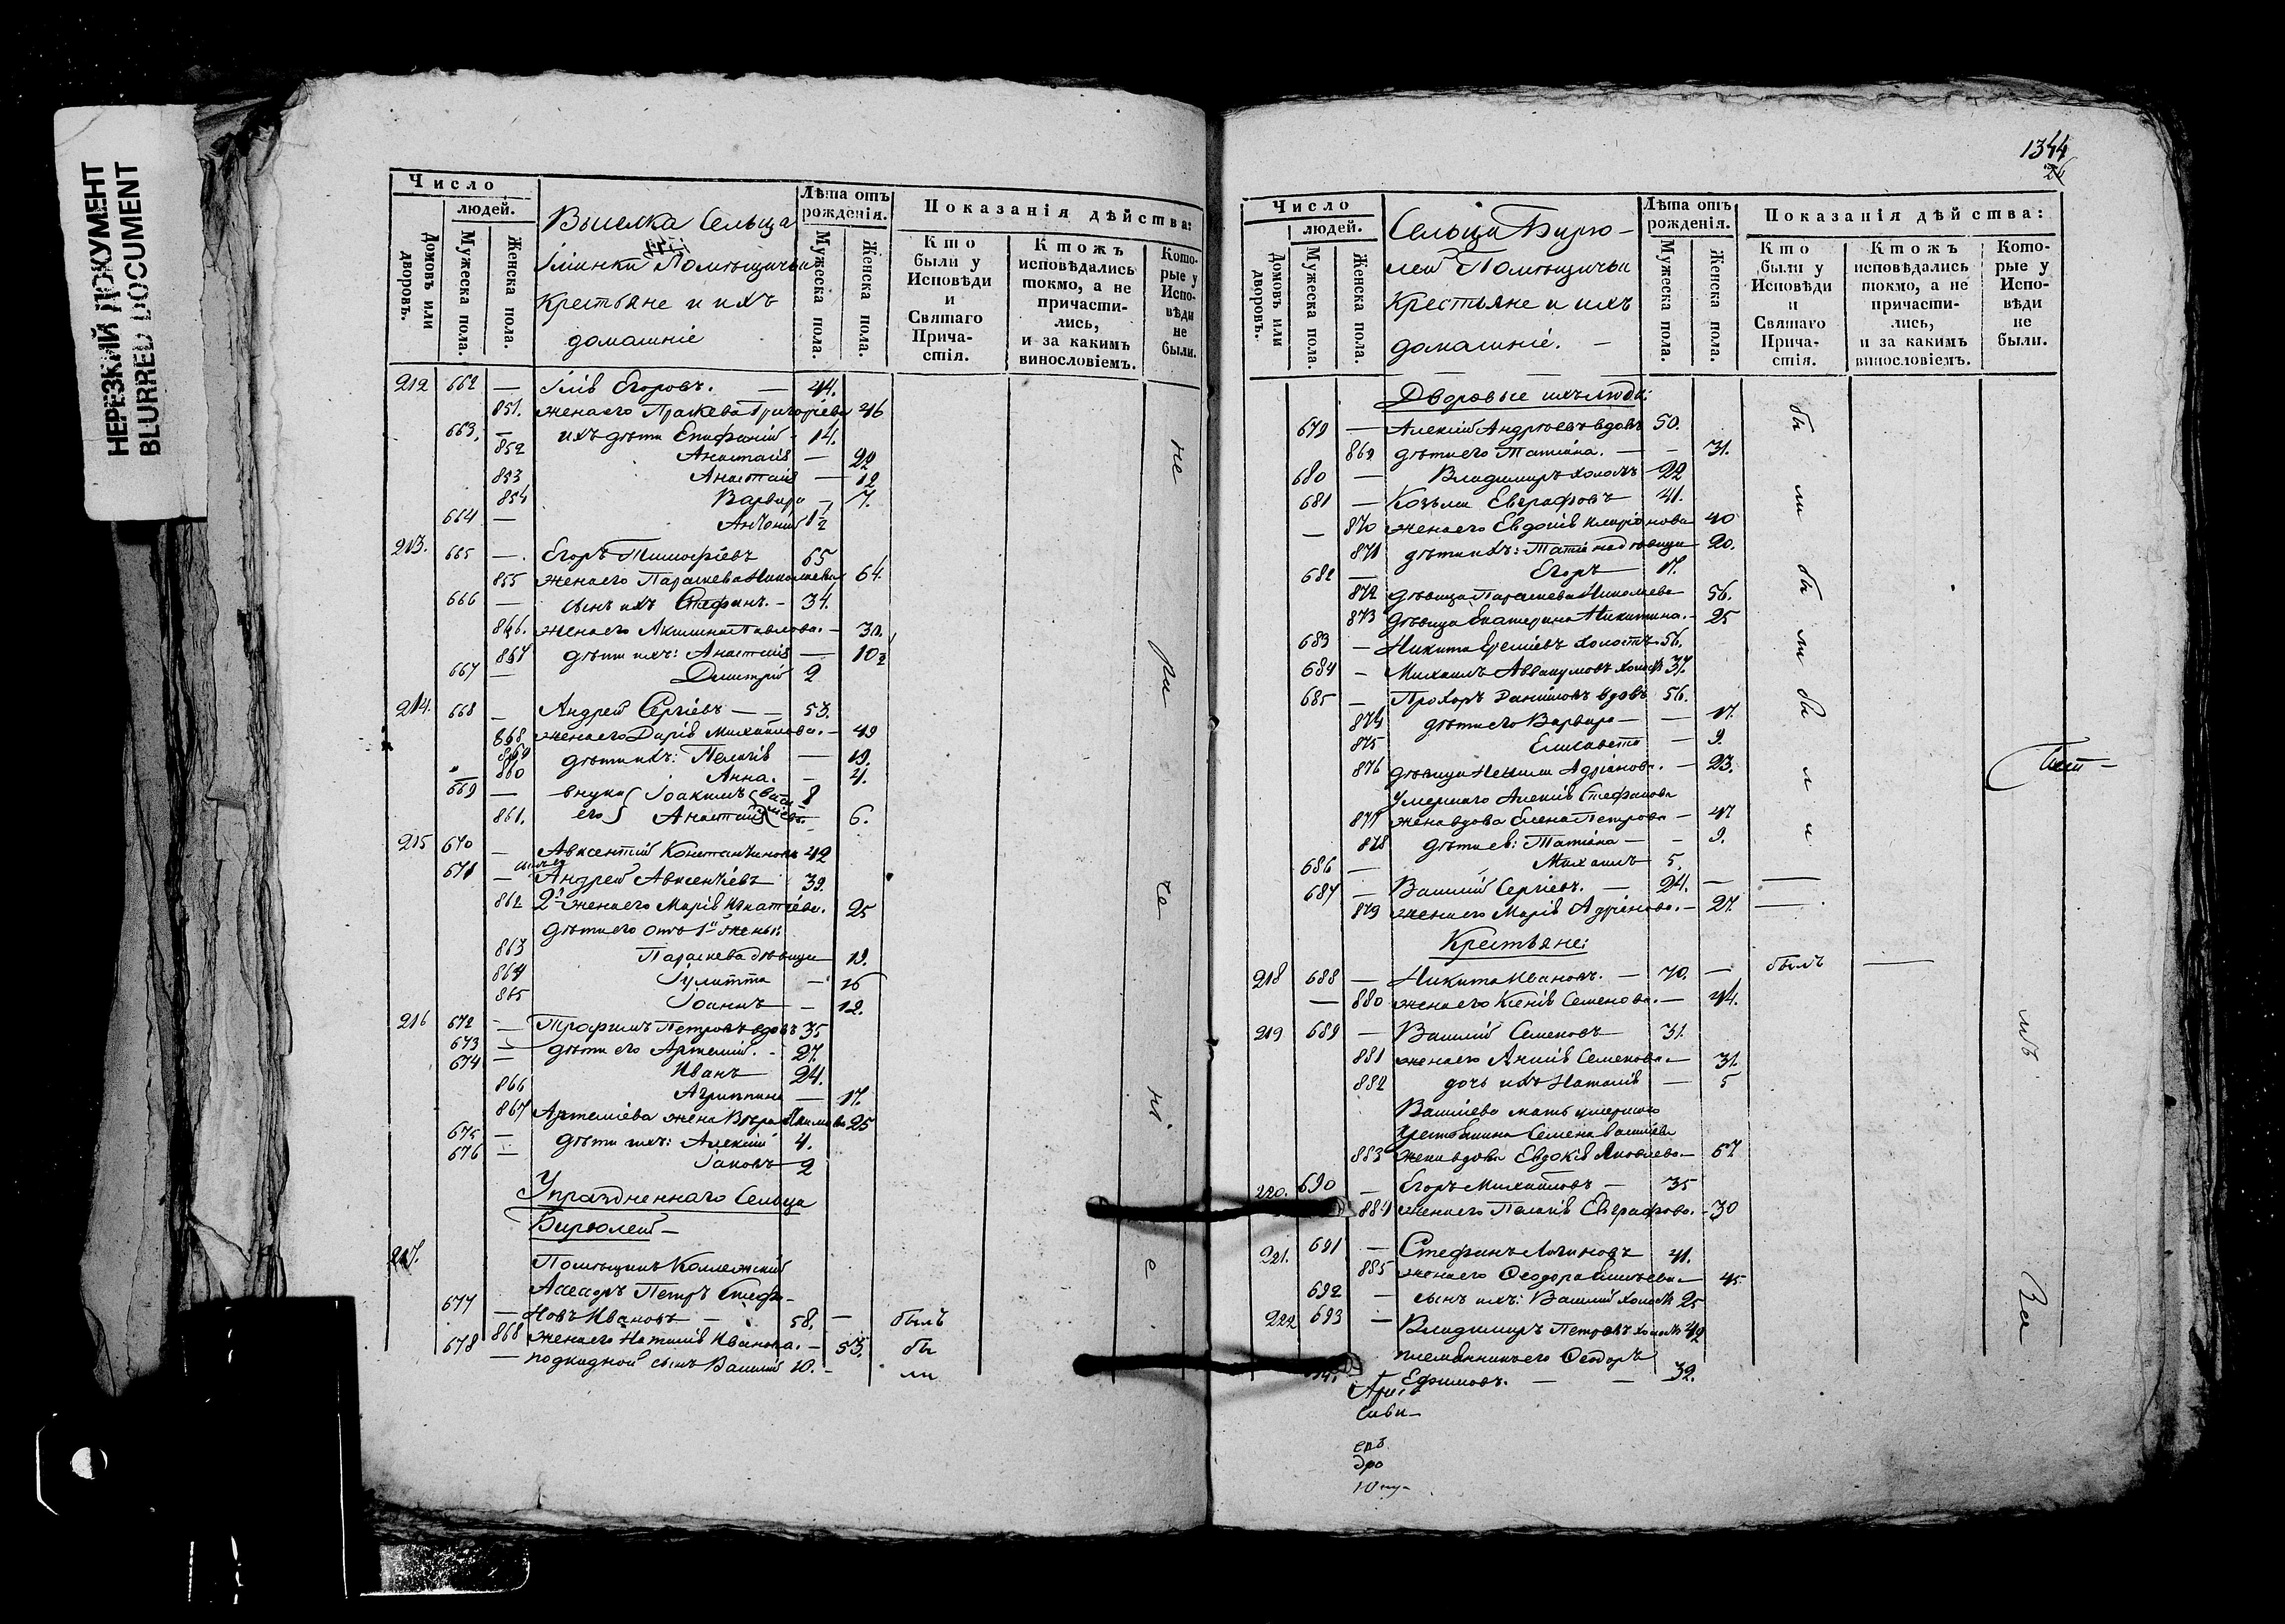 НЕРЕЗКИЙ ДОКУМЕНТ
BLURRED DOCUMENT
Число
людей.
Домовъ или дворовъ.
Мужеска пола.
Женска пола.
Сельца
Помѣщичьи
Крестьяне и ихъ
домашніе
Лѣта отъ рожденія.
Мужеска пола.
Женска пола.
Показанія дѣйства:
Кто были у Исповѣди и Святаго Прича-стія.
Ктожъ исповѣдались токмо, а не причасти-лись, и за какимъ винословіемъ.
Кото-рые у Испо-вѣди не были.
212 662 — Егоровъ. — 44.
851. жена его Григоріева 46
663. — ихъ дѣти Епифаній 14.
852 Анастасія — 22
853 Анастасія — 12
854 Варвара — 7.
664 — Антоній 1½
213. 665 — Егоръ Тимофѣевъ 65
855 жена его Параскева Николаева 64.
666 — сынъ ихъ Стефанъ. — 34.
жена его Акилина Павлова. — 30.
дѣти ихъ: Анастасія — 10½
667 — Димитрій 2
214. 668 — Андрей Сергіевъ — 53.
жена его Дарія Михайлова. — 49
дѣти ихъ: Пелагія — 19.
860 Анна. — 4.
669 — внуки его Іоакимъ 8
861. Анастасія 6.
215 670 — Авксентій Константиновъ 42
671 — сынъ его Андрей Авксентіевъ 39.
862 2я жена его Марія Игнатіева. 25
дѣти его отъ 1й жены:
863 Параскева дѣвица — 19.
864 Іулитта — 16
865 — 12.
216 672 — Трофимъ Петровъ вдовъ 35
673 — дѣти его Артемій. — 27.
674 — Иванъ 24.
866 Агриппина — 17.
867 Артеміева жена 25
675 — дѣти ихъ: Алексій 4.
676 — Іаковъ 2
Упраздненнаго Сельца
Бирюлей —
217. Помѣщикъ Коллежскій
677 — новъ Ивановъ — 58. — былъ
868 жена его Наталія Иванова. — 53. бы
678 — подкидной сынъ Василій 10. — ли
не
ри
че
н
е
1344
Число
людей.
Домовъ или дворовъ.
Мужеска пола.
Женска пола.
Сельца Бирю-
лей Помѣщичьи
Крестьяне и ихъ
домашніе. —
Лѣта отъ рожденія.
Мужеска пола.
Женска пола.
Показанія дѣйства:
Кто были у Исповѣди и Святаго Прича-стія.
Ктожъ исповѣдались токмо, а не причасти-лись, и за какимъ винословіемъ.
Кото-рые у Испо-вѣди не были.
Дворовые ихъ люди:
679 — Алексій Андреевъ вдовъ 50.
869 дѣти его Татіана. — 31.
680 — Владимиръ холостъ 22
681 — Козьма Евграфовъ 41.
— 870 жена его Евдокія Иларіонова 40
871 дѣти ихъ: Татіана дѣвица 20.
682 — Егоръ 17.
872 дѣвица Параскева Николаева 56.
873 дѣвица Екатерина Никитина. — 25
683 — Никита холостъ 56.
684 — Михаилъ Аввакумовъ холостъ 37.
685 — Прохоръ Даниловъ вдовъ 56.
874 дѣти его Варвара — 17.
875 Елисавета — 9.
876 дѣвица Адріанова. — 23.
умершаго Алексія Стефанова
877 жена вдова Елена Петрова — 47
878 дѣти ея: Татіана — 9.
686 — Михаилъ 5.
687 — Василій Сергіевъ. — 24. —
879 жена его Марія Адріанова. — 27. —
бы
ли
бы
ли
бы
л
и
Крестьяне:
218 688 — Никита Ивановъ. — 70. — былъ —
— 880 жена его Ксенія Семенова. — 44.
219 689 — Василій Семеновъ 31.
881 жена его Семенова — 31.
882 дочь ихъ Наталія — 5
Василіева мать умершаго
крестьянина Семена Василіева
883 жена вдова Евдокія Яковлева — 67
220. 690 — Егоръ Михайловъ — 35
884 жена его Пелагія Евграфова. — 30
221. 691 — Стефанъ Логиновъ 41.
885 жена его Ѳеодора 45
692 — сынъ ихъ: Василій холостъ 25
222 693 — Владимиръ Петровъ холостъ 42
племянникъ его Ѳеодоръ
Ефимовъ. — 32.